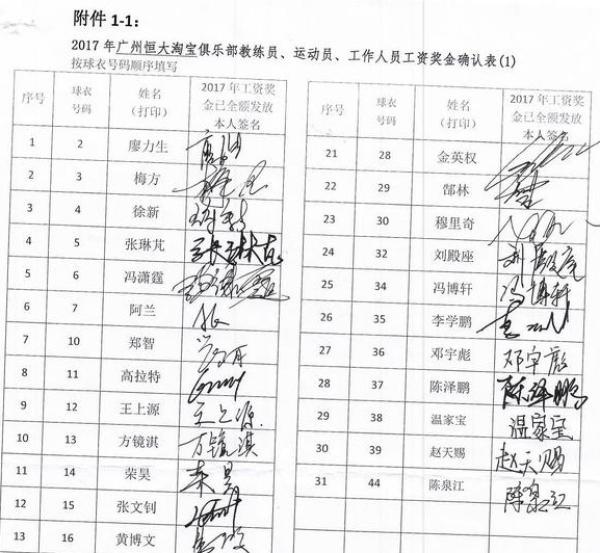 附件 1-1：
2017 年广州恒大淘宝俱乐部教练员、运动员、工作人员工资奖金确认表(1)
按球衣号码顺序填写
序号 球衣号码 姓名（打印） 2017 年工资奖金已全额发放本人签名
1 2 廖力生
2 3 梅方
3 4 徐新
4 5 张琳芃 张琳芃
5 6 冯潇霆
6 7 阿兰
7 10 郑智
8 11 高拉特
9 12 王上源 王上源
10 13 方镜淇 方镜淇
11 14 荣昊 荣昊
12 15 张文钊
13 16 黄博文
序号 球衣号码 姓名（打印） 2017 年工资奖金已全额发放本人签名
21 28 金英权
22 29 郜林
23 30 穆里奇
24 32 刘殿座 刘殿座
25 34 冯博轩 冯博轩
26 35 李学鹏
27 36 邓宇彪 邓宇彪
28 37 陈泽鹏 陈泽鹏
29 38 温家宝 温家宝
30 39 赵天赐 赵天赐
31 44 陈泉江 陈泉江